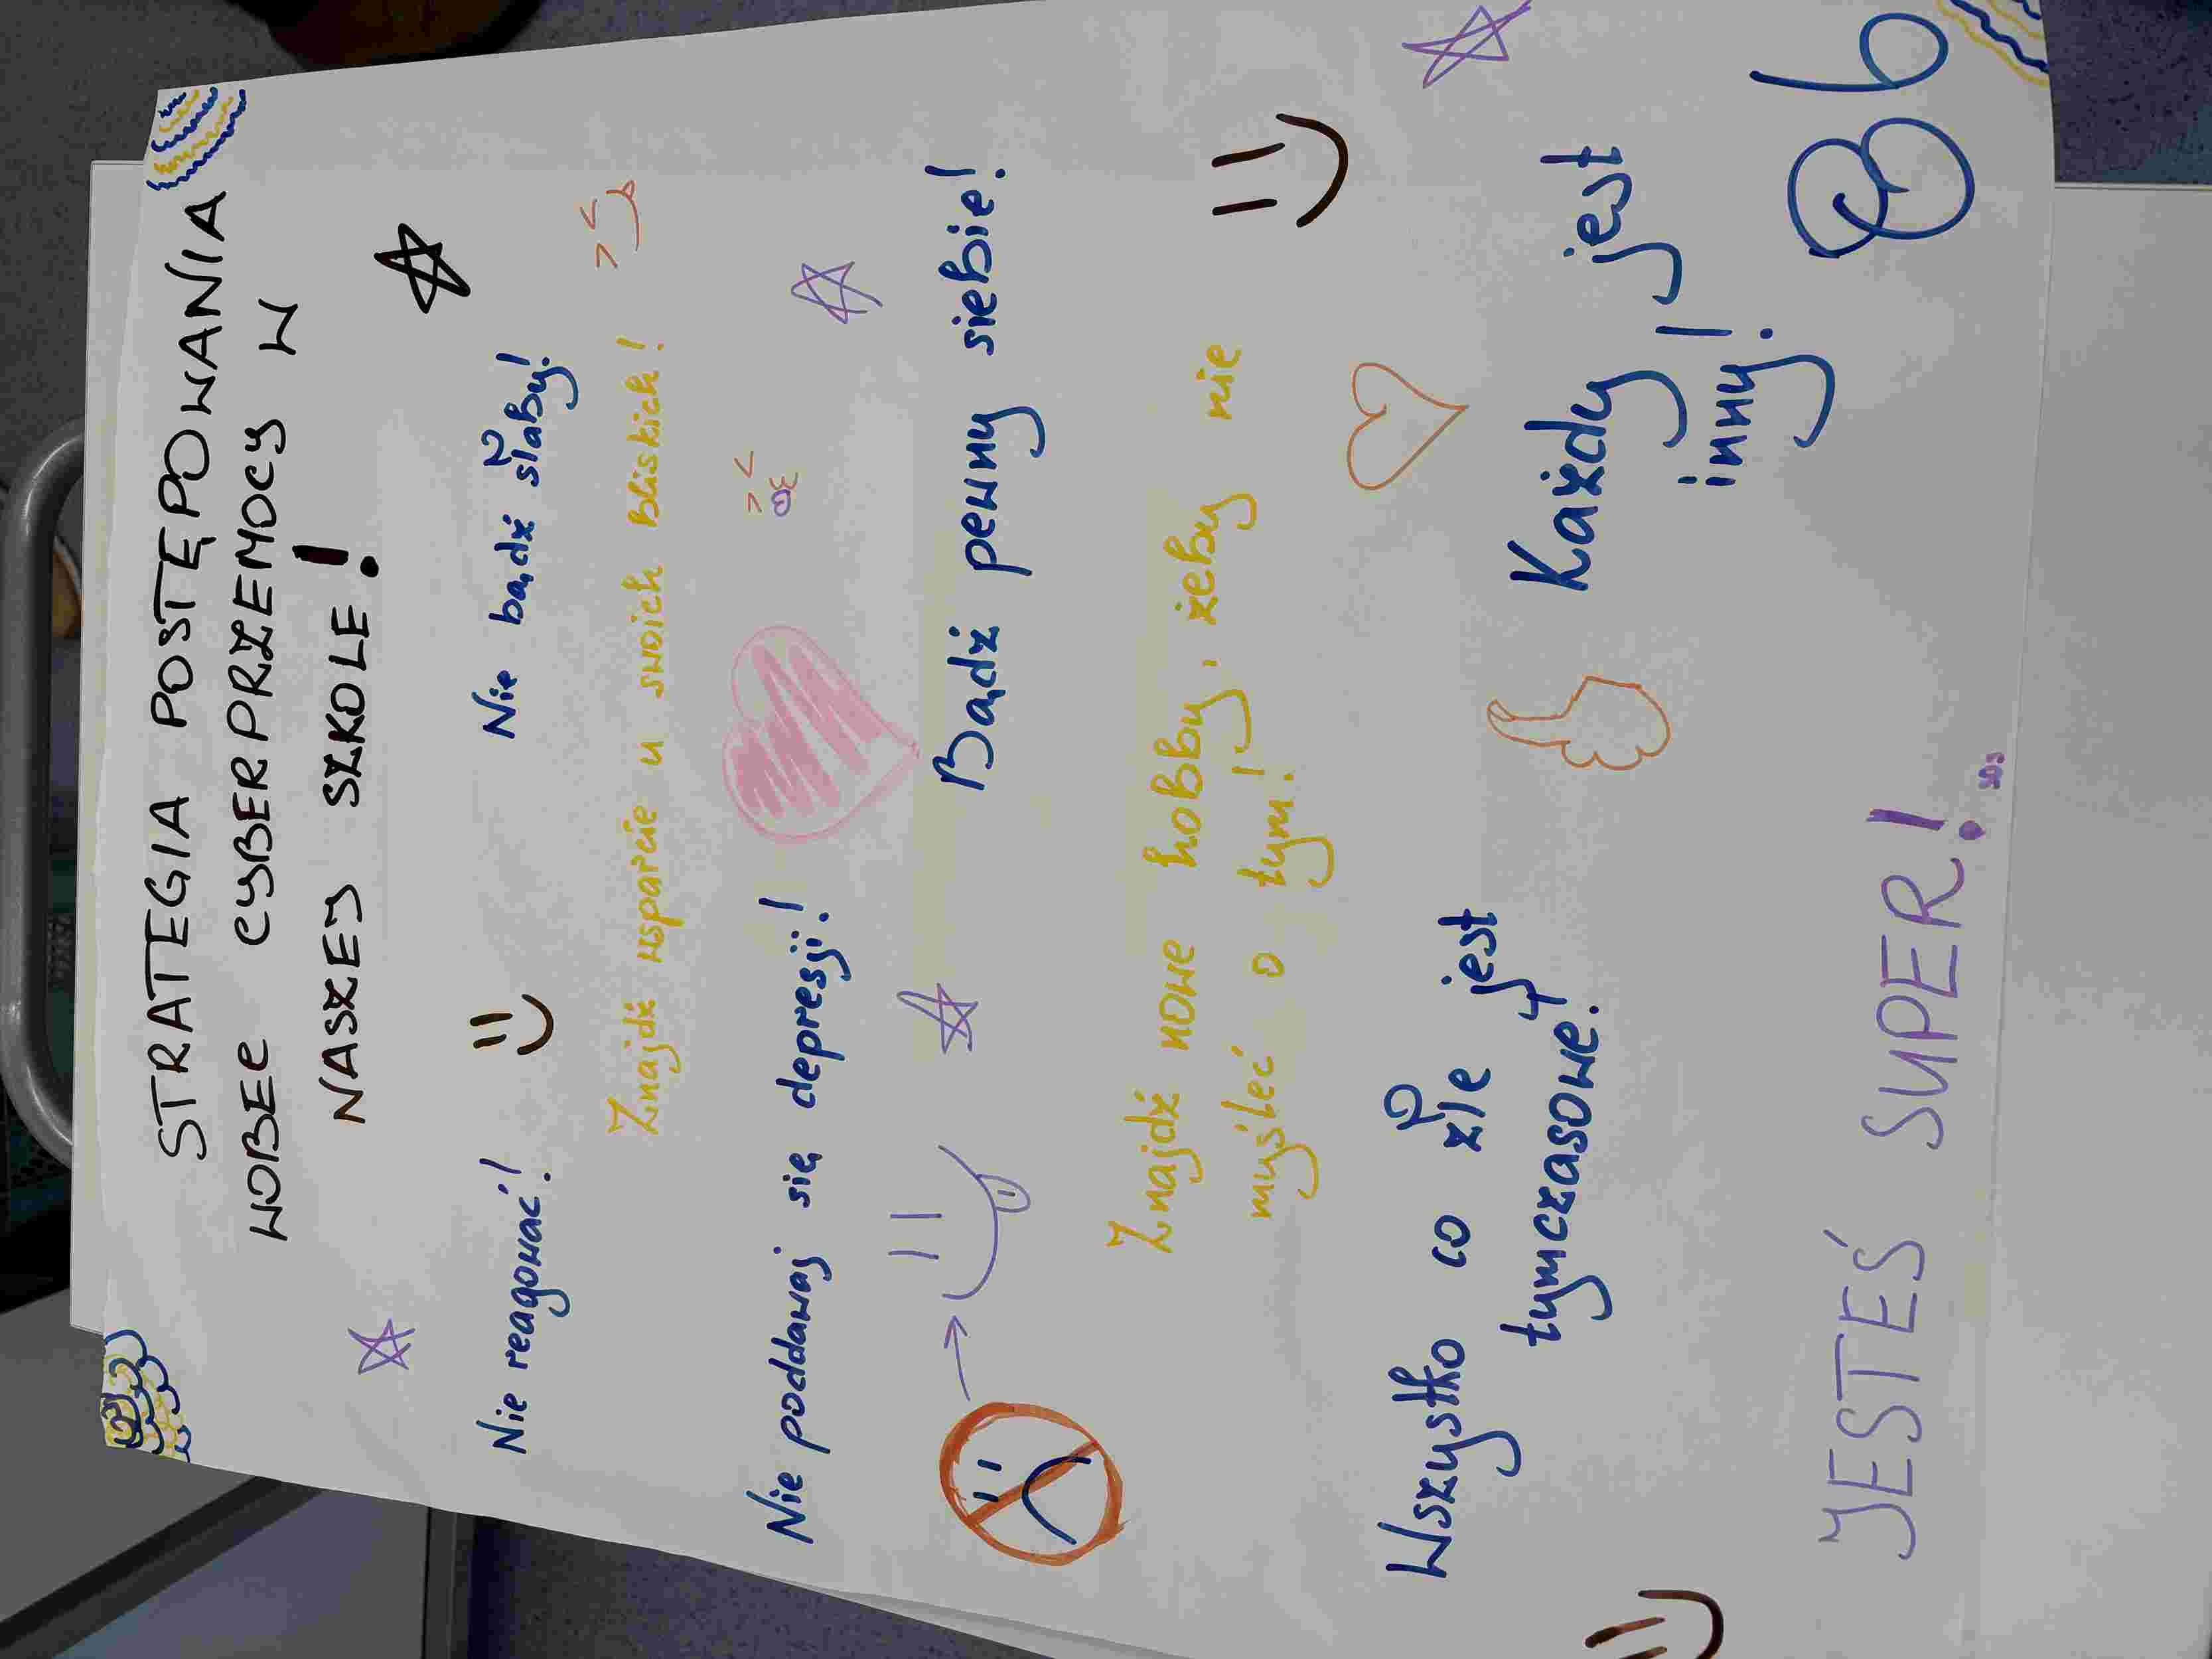 STRATEGIA POSTĘPOWANIA
WOBEC CYBERPRZEMOCY W
NASZEJ SZKOLE!
Nie reagować!
Nie bądź słaby!
Znajdź wsparcie u swoich bliskich!
Nie poddawaj się depresji!
Bądź pewny siebie!
Znajdź nowe hobby, żeby nie
myśleć o tym!
Wszystko co źle jest
tymczasowe!
Każdy jest
inny!
JESTEŚ SUPER!
8b